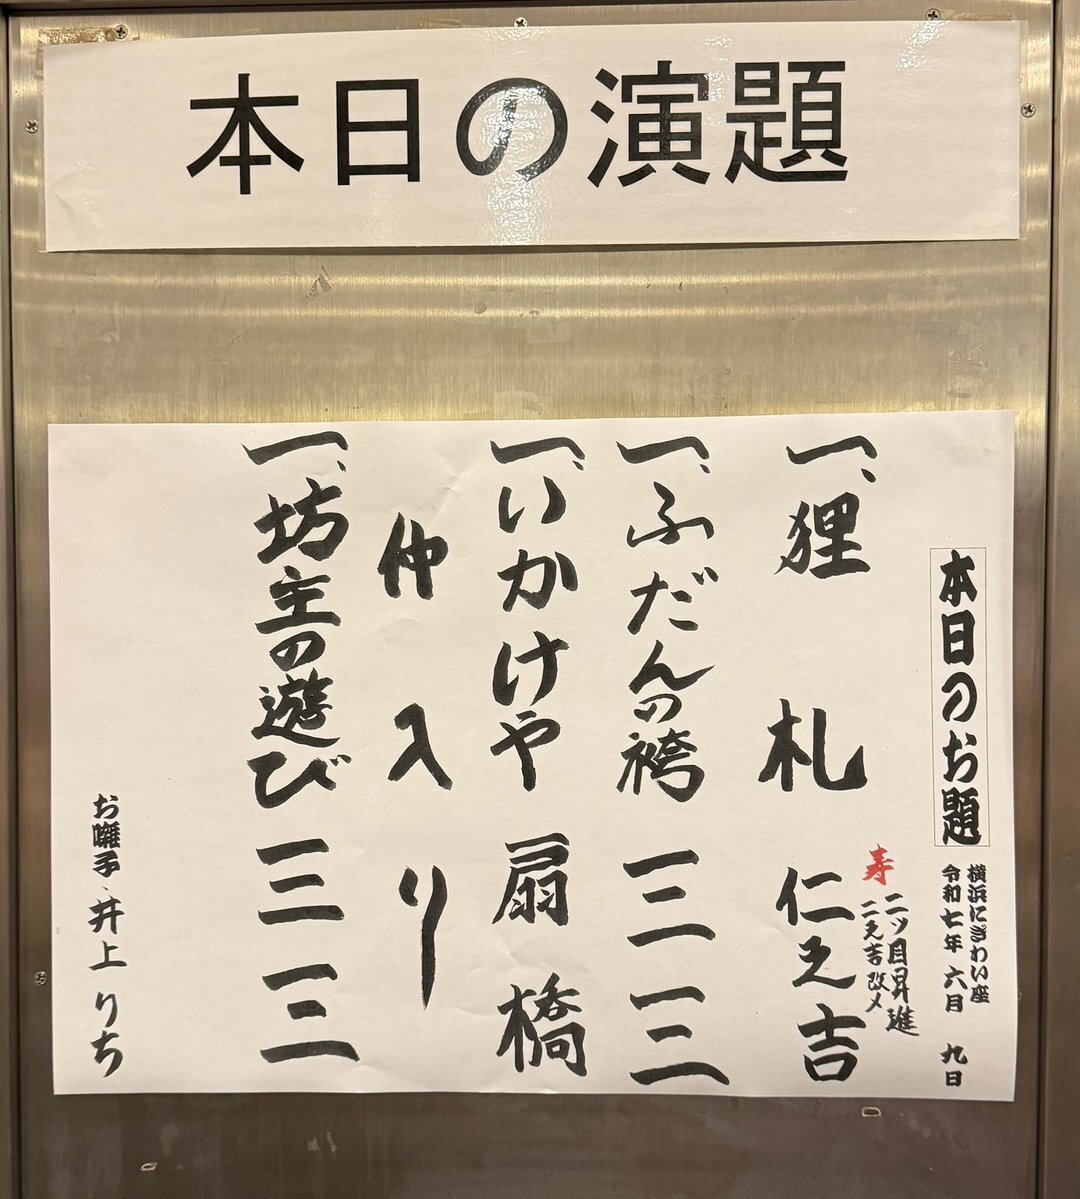 本日の演題
本日のお題
横浜にぎわい座
令和七年 六月 九日
寿 二ツ目昇進
二之吉改メ
一、狸札 仁之吉
一、ふだんの袴 三三
一、いかけや 扇橋
仲入り
一、坊主の遊び 三三
お囃子、井上りち